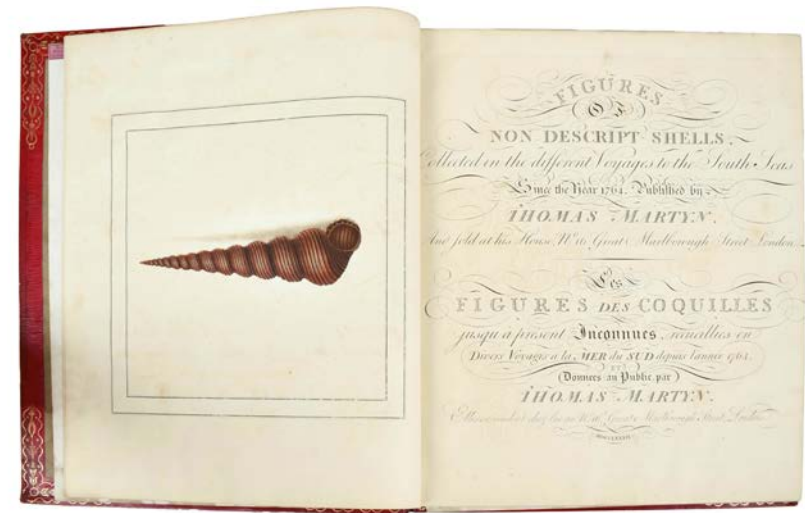 FIGURES
OF
NON DESCRIPT SHELLS,
Collected in the different Voyages to the South Seas
Since the Year 1764. Published by
THOMAS MARTYN.
And sold at his House Nº 16 Great Marlborough Street London.
Les
FIGURES DES COQUILLES
jusqu'a present Inconnues, recueillies en
Divers Voyages a la MER du SUD depuis l'année 1764.
ET
Donnees au Public, par
THOMAS MARTYN.
Great Marlborough Street, London